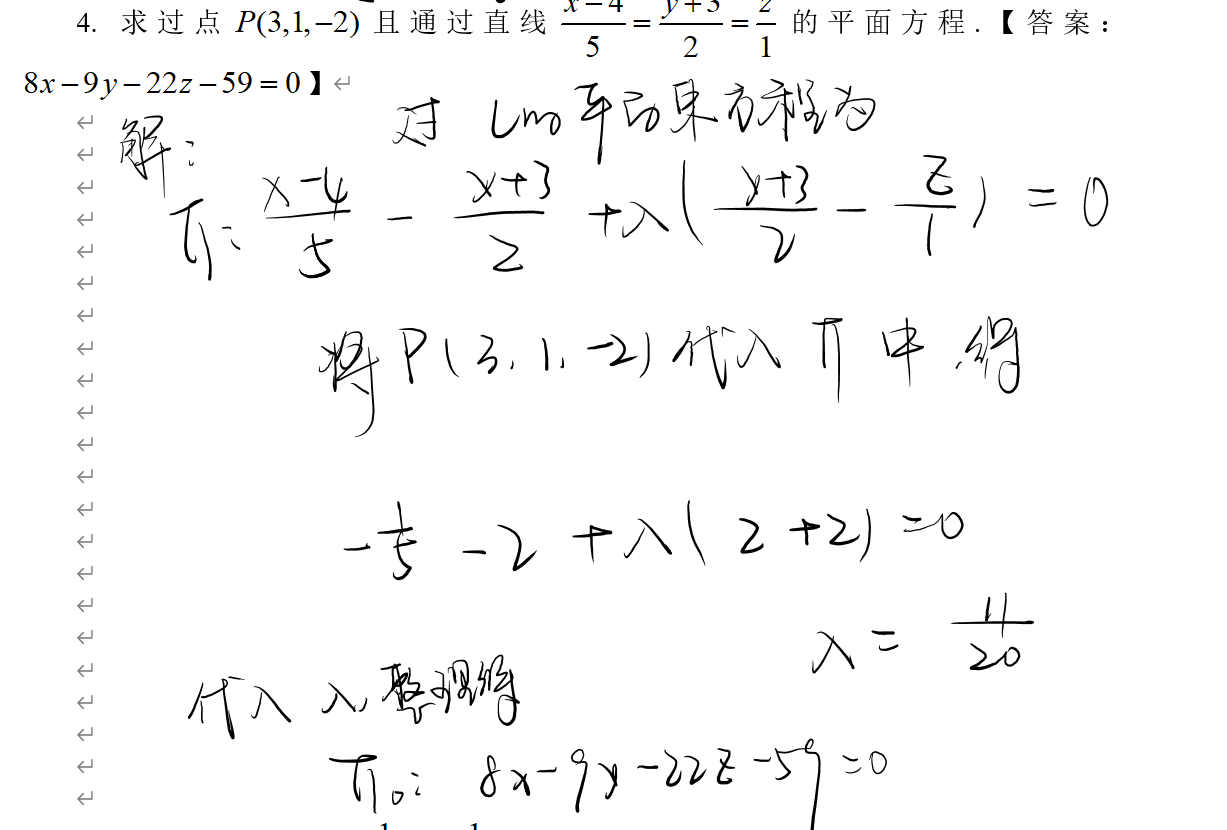 4. 求过点 P(3,1,−2) 且通过直线 (x−4)/5 = (y+3)/2 = z/1 的平面方程.【答案:
8x−9y−22z−59=0】
解: 对 L的平面束方程为
π: (x−4)/5 − (y+3)/2 + λ( (y+3)/2 − z/1 ) = 0
将 P(3, 1, −2) 代入 π 中 得
−1/5 − 2 + λ( 2 + 2) = 0
λ = 11/20
代入 λ, 整理得
π₀: 8x − 9y − 22z − 59 = 0